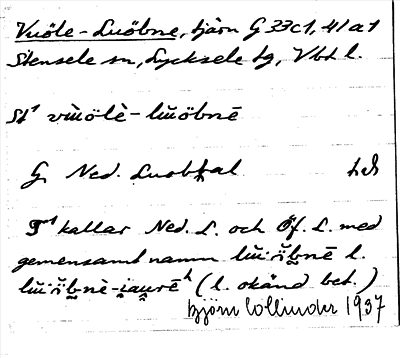 Vuöle-Luöbne, tjärn G 33c1, 41a1
Stensele sn, Lycksele tg, Vbt l.
St¹ vùölè-lŭöbnē
G Ned. Luobbal
kallar Ned. L. och Öf. L. med
gemensamt namn
(l. okänd bet.)
Björn Collinder 1937